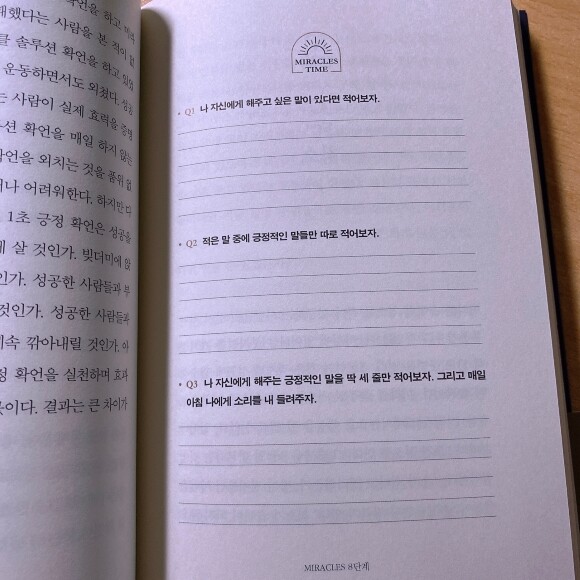 확언을 하고
했다는 사람을 본 적이 없
솔루션 확언을 하고 일상
운동하면서도 외쳤다. 성공
는 사람이 실제 효력을 증명
션 확언을 매일 하지 않는
확언을 외치는 것을 품위 없
거나 어려워한다. 하지만 다
1초 긍정 확언은 성공을
게 살 것인가. 빚더미에 앉
인가. 성공한 사람들과 부
것인가. 성공한 사람들과
계속 깎아내릴 것인가, 아
정 확언을 실천하며 효과
곳이다. 결과는 큰 차이가
MIRACLES
TIME
• Q1 나 자신에게 해주고 싶은 말이 있다면 적어보자.
• Q2 적은 말 중에 긍정적인 말들만 따로 적어보자.
• Q3 나 자신에게 해주는 긍정적인 말을 딱 세 줄만 적어보자. 그리고 매일
아침 나에게 소리를 내 들려주자.
MIRACLES 8단계